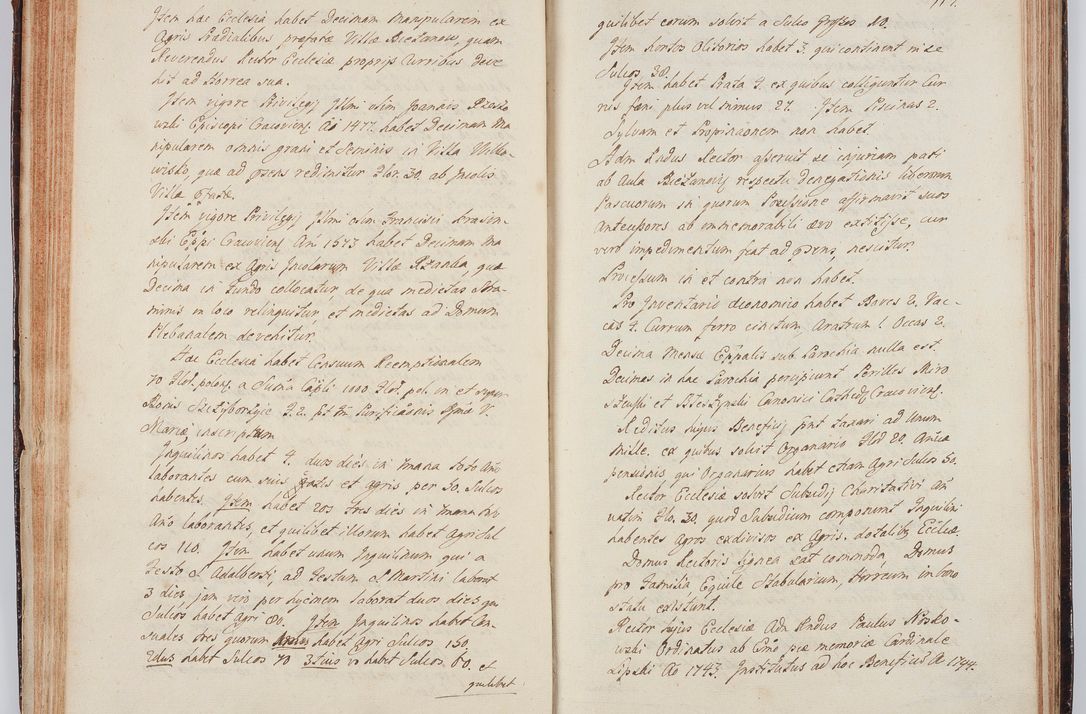 Item hac Ecclesia habet Decimam Manipularem ex
Agris Prædialibus præfatæ Villæ Bieżanow, quam
Reverendus Rector Ecclesiæ proprijs Curribus deve
hit ad Horrea sua.
Item vigore Privilegij Illmi olim Joannis Rzeso
wski Episcopi Cracovien. Ao 1477. habet Decimam Ma
nipularem omnis grani et seminis in Villa Wilko-
wisko, quæ ad præsens redimitur Flor. 30. ab Incolis
Villæ
Item vigore Privilegij Illmi olim Francisci Krasin
ski Eppi Cracovien Ani 1573 habet Decimam Ma
nipularem ex Agris Incolarum Villæ Rżanka, quæ
Decima in fundo collocatur, de qua medietas Stra-
minis in loco relinquitur, et medietas ad Domum
Plebanalem devehitur.
Hæc Ecclesia habet Censum Reemptionalem
70 Flor. polon. a Suma Capli 1000. Flor. pol. in et super
Bonis F. 2. Purificationis V.
Mariæ, inscriptum
Inquilinos habet 4. duos dies in omni toto Ano
laborantes cum suis et agris per 50. Sulcos
habentes. Item habet 2os tres dies in
Ano laborantes, et quilibet illorum habet Agri Sul
cos 110. Item habet unum Inquilinum qui a
Festo S. Adalberti, ad Festum S. Martini laborat
3 dies jam vero per hyemem laborat duos dies qui
Sulcos habet Agri 80. Item Inquilinos habet Cen
suales tres quorum habet Agri Sulcos 150
2dus habet Sulcos 70 3tius vo habet Sulcos 60. et
quilibet
quilibet eorum solvit a Sulco Grossos 10.
Item hortos Olitorios habet 3. qui continent in se
Sulcos 38.
Item habet Prata 4. ex quibus colliguntur Cur
rus fæni plus vel minus 27. Item Piscinas 2.
Sylvam et Propinaonem non habet.
Adm Rndus Rector asseruit se injuriam pati
ab Aula Bieżanovij respectu denegationis liberorum
Pascuorum in quorum Possessione affirmavit suos
Antecessores ab immemorabili ævo extitisse, cur
vero impedimentum fiat ad præsens, nescitur.
Processum in et contra non habet.
Pro Inventario œconomico habet Boves 2. Vac-
cas 4. Currum ferro cinctum, Aratrum 1. Occas 2.
Decima Mensæ Eppalis sub Parochia nulla est.
Decimas in hac Parochia percipiunt Perilles Miro
szewski et Canonici Cathedr. Cracovien.
Reditus hujus Beneficij sunt taxari ad Unum
Mille. ex quibus solvit Organario Flor 20. Anuæ
pensionis qui Organarius habet etiam Agri Sulcos 50.
Rector Ecclesiæ solvit Subsidij Charitativi an
uatim Flo. 30. quod Subsidium componunt Inquilini
habentes Agros exdivisos ex Agris dotalib9 Ecclæ.
Domus Rectoris lignea sat commoda, Domus
pro Familia Equile Stabularium, Horreum in bono
statu existunt.
Rector hujus Ecclesiæ Adm Rndus Paulus Nosko
wski Ordinatus ab Emo piæ memoriæ Cardinale
Lipski Ao 1743. Institutus ad hoc Beneficium Ao 1744.